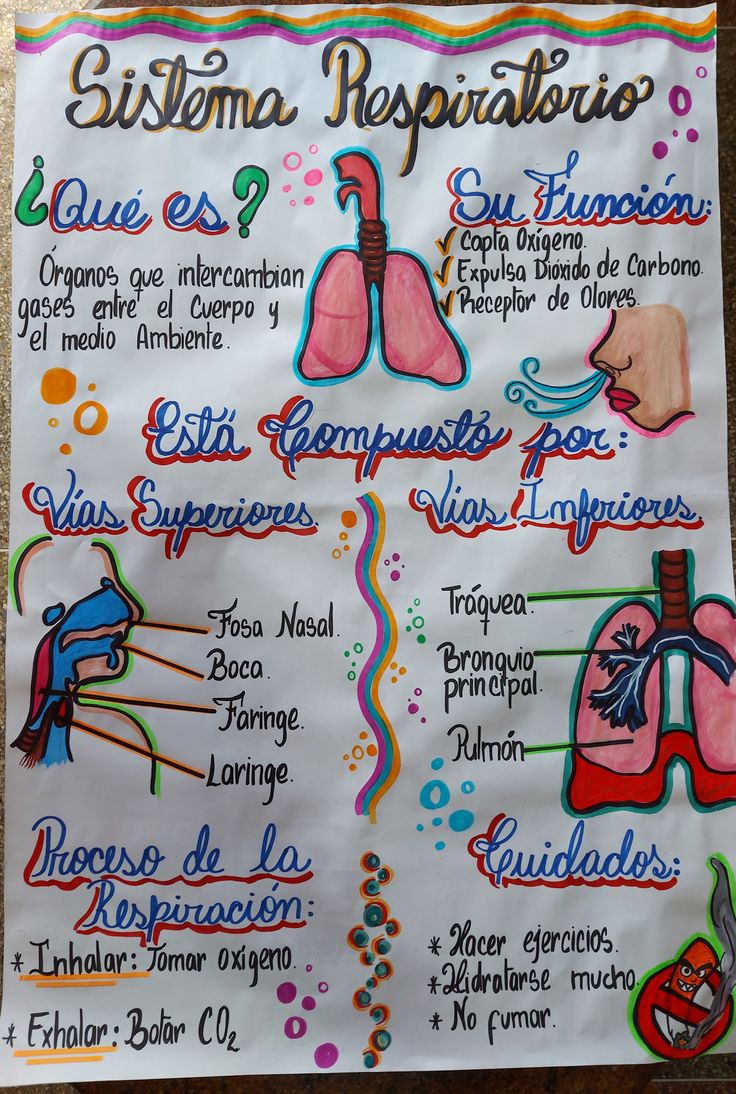 Sistema Respiratorio
¿Qué es?
Órganos que intercambian
gases entre el Cuerpo y
el medio Ambiente.
Su Función:
✓ Capta Oxígeno.
✓ Expulsa Dióxido de Carbono.
✓ Receptor de Olores.
Está Compuesto por:
Vías Superiores.
Fosa Nasal.
Boca.
Faringe.
Laringe.
Vías Inferiores.
Tráquea.
Bronquio
principal.
Pulmón
Proceso de la
Respiración:
* Inhalar: Tomar oxígeno.
* Exhalar: Botar CO₂
Cuidados:
* Hacer ejercicios.
* Hidratarse mucho.
* No fumar.